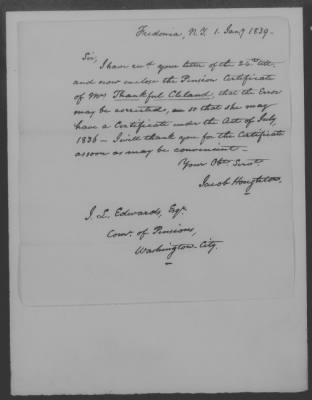 Fredonia, N.Y. 1. Jany 1839.
Sir,
I have recd your letter of the 22nd ult.
and now enclose the Pension Certificate
of Mrs Thankful Cleland, that the Error
may be corrected, so that she may
have a Certificate under the Act of July
1836 – I will thank you for the Certificate
as soon as may be convenient –
Your Obt Servt
Jacob Houghton.
J. L. Edwards, Esqr.
Comr. of Pensions,
Washington City.